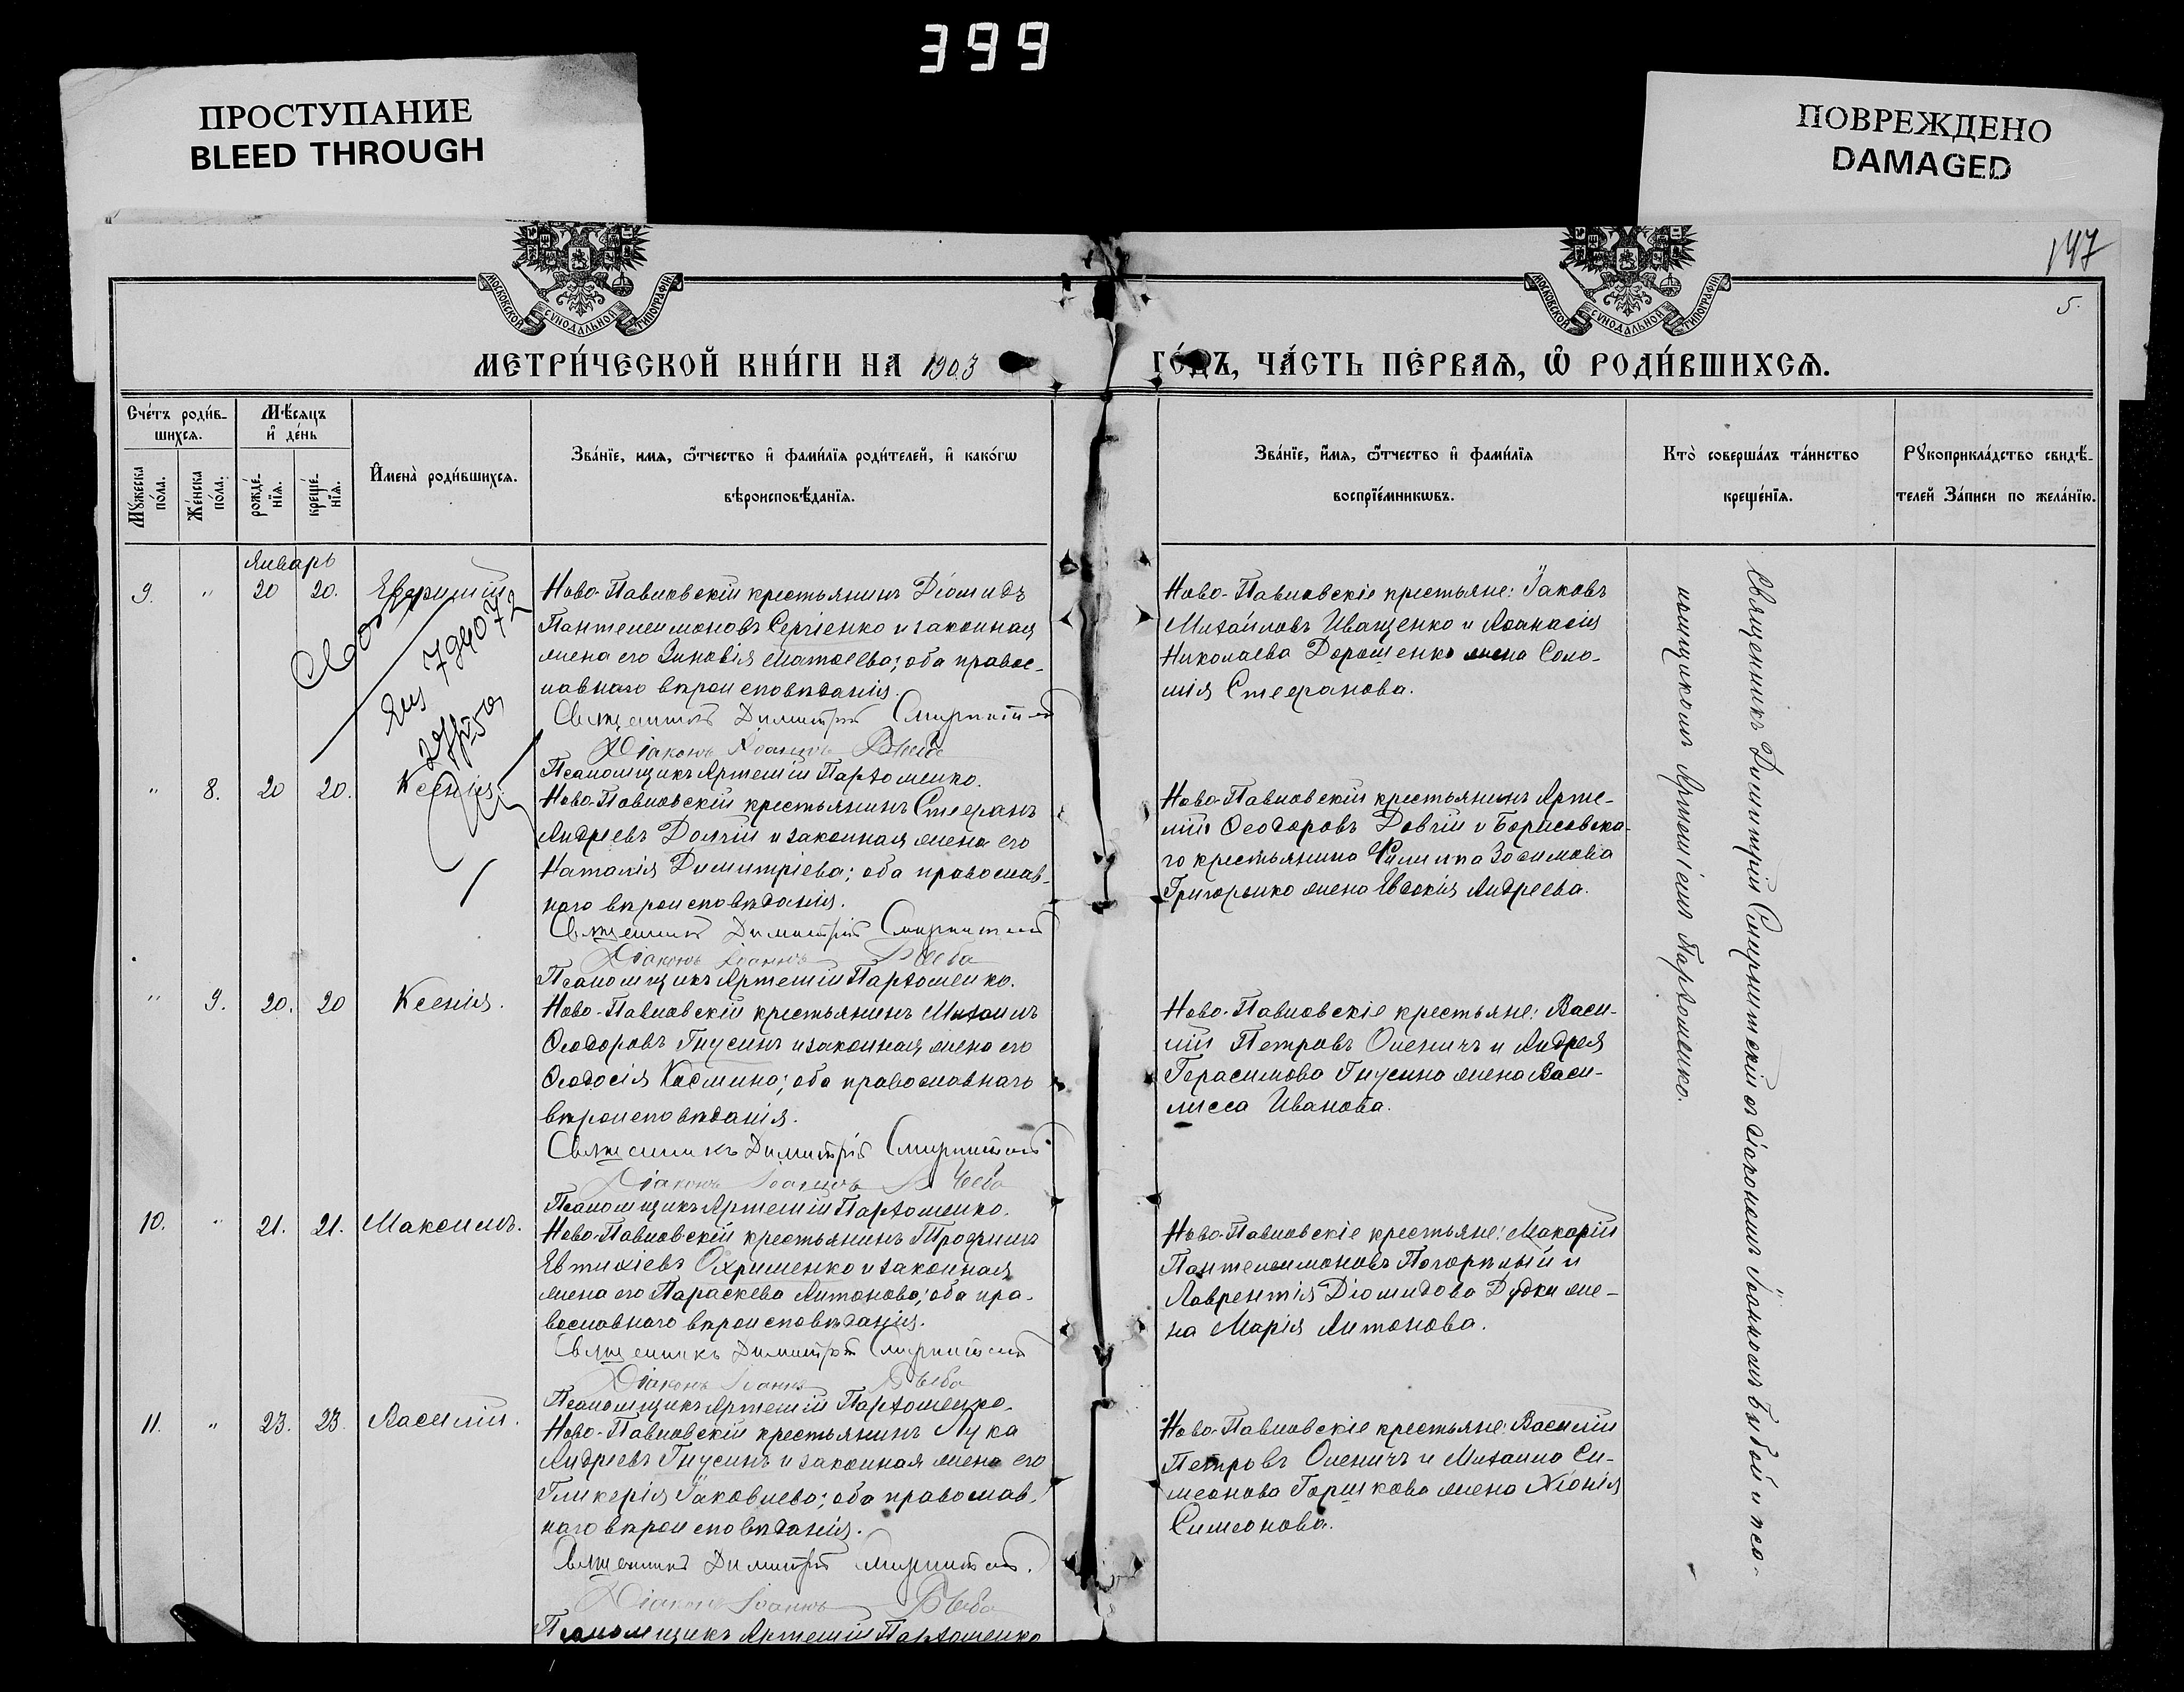 399
ПРОСТУПАНИЕ
BLEED THROUGH
ПОВРЕЖДЕНО
DAMAGED
147
5.
МОСКОВСКОЙ СУНОДАЛЬНОЙ ТИПОГРАФІИ
МОСКОВСКОЙ СУНОДАЛЬНОЙ ТИПОГРАФІИ
МЕТРИ́ЧЕСКОЙ КНИ́ГИ НА 1903
ГО́ДЪ, ЧА́СТЬ ПЕ́РВАѦ, Ѡ РОДИ́ВШИХСѦ.
Сче́тъ роди́в-
шихсѧ.
Мѣ́сѧцъ
и҆ де́нь
Мꙋ́жеска
по́ла.
Же́нска
по́ла.
рожде́-
нїѧ.
креще́-
нїѧ.
И҆мена̀ роди́вшихсѧ.
Зва́нїе, имѧ, ѿтчество и҆ фами́лїѧ роди́телей, и҆ како́гѡ
вѣроисповѣ́данїѧ.
Зва́нїе, и҆мѧ, ѿтчество и҆ фами́лїѧ
воспрїе́мникѡвъ.
Кто̀ соверша́лъ та́инство
креще́нїѧ.
Рꙋкоприкла́дство свидѣ́-
телей За́писи по жела́нїю.
Январь
9. " 20 20. Евфимій
Ново-Павловскій крестьянинъ Діомидъ
Пантелеимоновъ Сергіенко и законная
жена его Зиновія Матѳеева; оба правос-
лавнаго вѣроисповѣданія.
Священникъ Димитрій
Діаконъ Іоаннъ
Псаломщикъ Артемій Пархоменко.
Ново-Павловскіе крестьяне: Іаковъ
Михайловъ Иващенко и Аѳанасія
Николаева Дорошенко жена Соло-
мія Стефанова.
794072
" 8. 20 20. Ксенія.
Ново-Павловскій крестьянинъ Стефанъ
Андреевъ Долгій и законная жена его
Наталія Димитріева; оба православ-
наго вѣроисповѣданія.
Священникъ Димитрій
Діаконъ Іоаннъ
Псаломщикъ Артемій Пархоменко.
Ново-Павловскій крестьянинъ Арте-
мій Ѳеодоровъ Довгій и Борисовска-
го крестьянина Филиппа Зосимова
Григоренко жена Евдокія Андреева.
" 9. 20. 20 Ксенія.
Ново-Павловскій крестьянинъ Михаилъ
Ѳеодоровъ Гнусинъ и законная жена его
Ѳеодосія Космина; оба православнаго
вѣроисповѣданія.
Священникъ Димитрій
Діаконъ Іоаннъ
Псаломщикъ Артемій Пархоменко.
Ново-Павловскіе крестьяне: Васи-
лій Петровъ Оленичъ и Андрея
Герасимова Гнусина жена Васи-
лисса Иванова.
10. " 21. 21. Максимъ.
Ново-Павловскій крестьянинъ Трофимъ
Евтихіевъ Охрименко и законная
жена его Параскева Антонова; оба пра-
вославнаго вѣроисповѣданія.
Священникъ Димитрій
Діаконъ Іоаннъ
Псаломщикъ Артемій Пархоменко.
Ново-Павловскіе крестьяне: Макарій
Пантелеимоновъ Погорѣлый и
Лаврентія Діомидова Дудки же-
на Марія Антонова.
11. " 23. 23. Василій.
Ново-Павловскій крестьянинъ Лука
Андреевъ Гнусинъ и законная жена его
Гликерія Іаковлева; оба православ-
наго вѣроисповѣданія.
Священникъ Димитрій
Діаконъ Іоаннъ
Псаломщикъ Артемій Пархоменко
Ново-Павловскіе крестьяне: Василій
Петровъ Оленичъ и Михаила Си-
меонова Горшкова жена Хіонія
Симеонова.
Священникъ Димитрій Смирнитскій съ діакономъ Іоанномъ Быбой и пса-
ломщикомъ Артеміемъ Пархоменко.